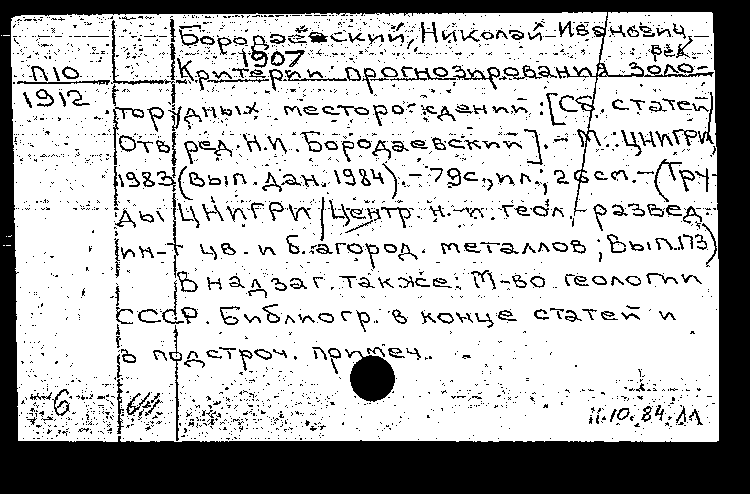 Бородаевский, Николай Иванович,
1907
рек
П10
Критерии прогнозирования золо-
1912
торудных месторождений: [Сб. статей
Отв ред. Н.И. Бородаевский]. - М.: ЦНИГРИ,
1983 (вып. дан. 1984). - 79с., ил.; 26см. - (Тру-
ды ЦНИГРИ/Центр. н.-и. геол.-развед.
ин-т цв. и благород. металлов; Вып. 173)
В надзаг. также: М-во геологии
СССР. Библиогр. в конце статей и
в подстроч. примеч.
6
11.10.84.